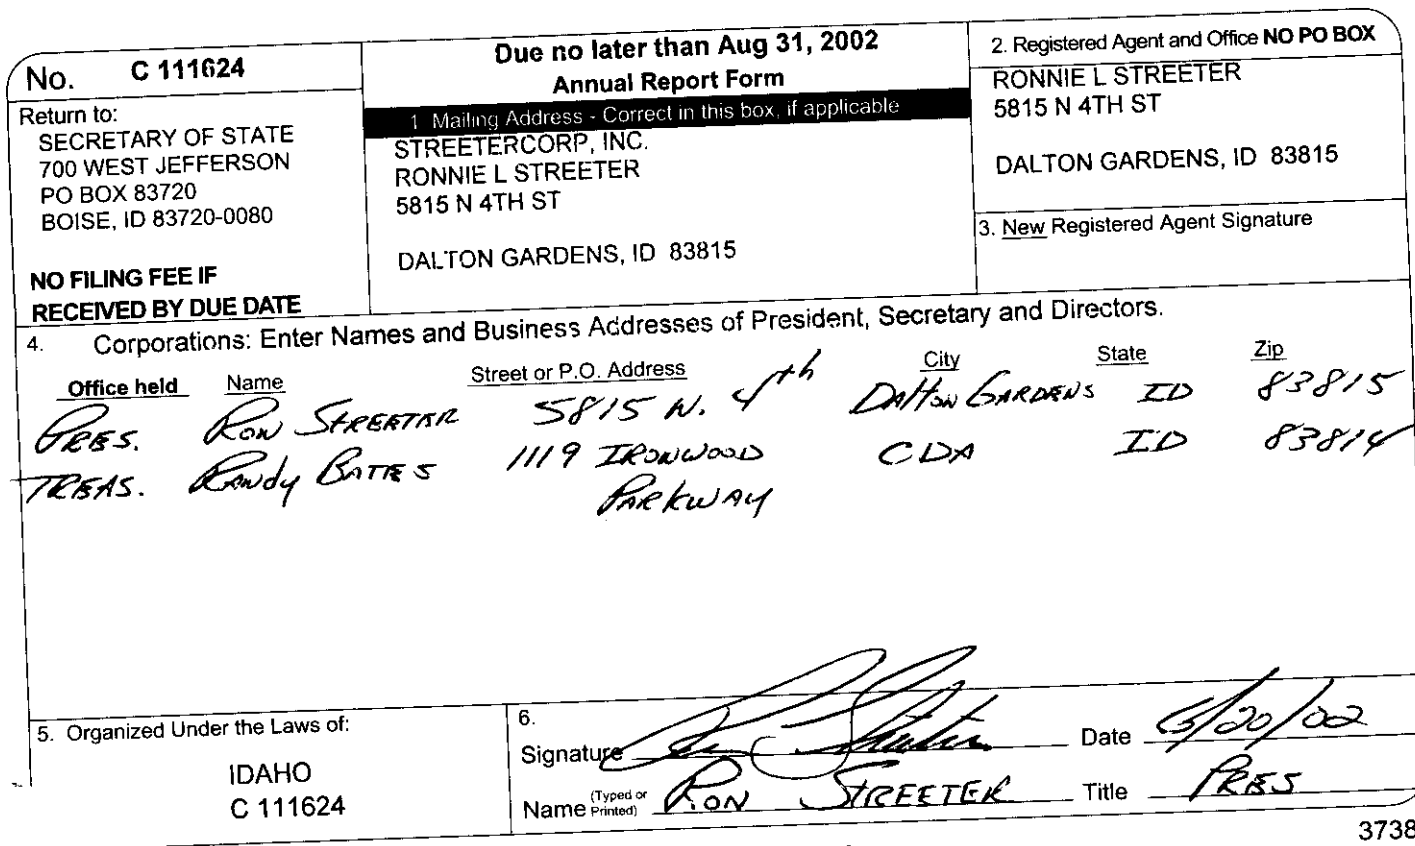 No. C 111624
Return to:
SECRETARY OF STATE
700 WEST JEFFERSON
PO BOX 83720
BOISE, ID 83720-0080
NO FILING FEE IF
RECEIVED BY DUE DATE
Due no later than Aug 31, 2002
Annual Report Form
1 Mailing Address - Correct in this box, if applicable
STREETERCORP, INC.
RONNIE L STREETER
5815 N 4TH ST
DALTON GARDENS, ID 83815
2. Registered Agent and Office NO PO BOX
RONNIE L STREETER
5815 N 4TH ST
DALTON GARDENS, ID 83815
3. New Registered Agent Signature
4. Corporations: Enter Names and Business Addresses of President, Secretary and Directors.
Office held Name Street or P.O. Address City State Zip
PRES. RON STREETER 5815 N. 4th Dalton GARDENS ID 83815
TREAS. Randy BATES 1119 IRONWOOD CDA ID 83814
PARKWAY
5. Organized Under the Laws of:
IDAHO
C 111624
6.
Signature Date 6/20/02
Name (Typed or Printed) RON STREETER Title PRES
3738